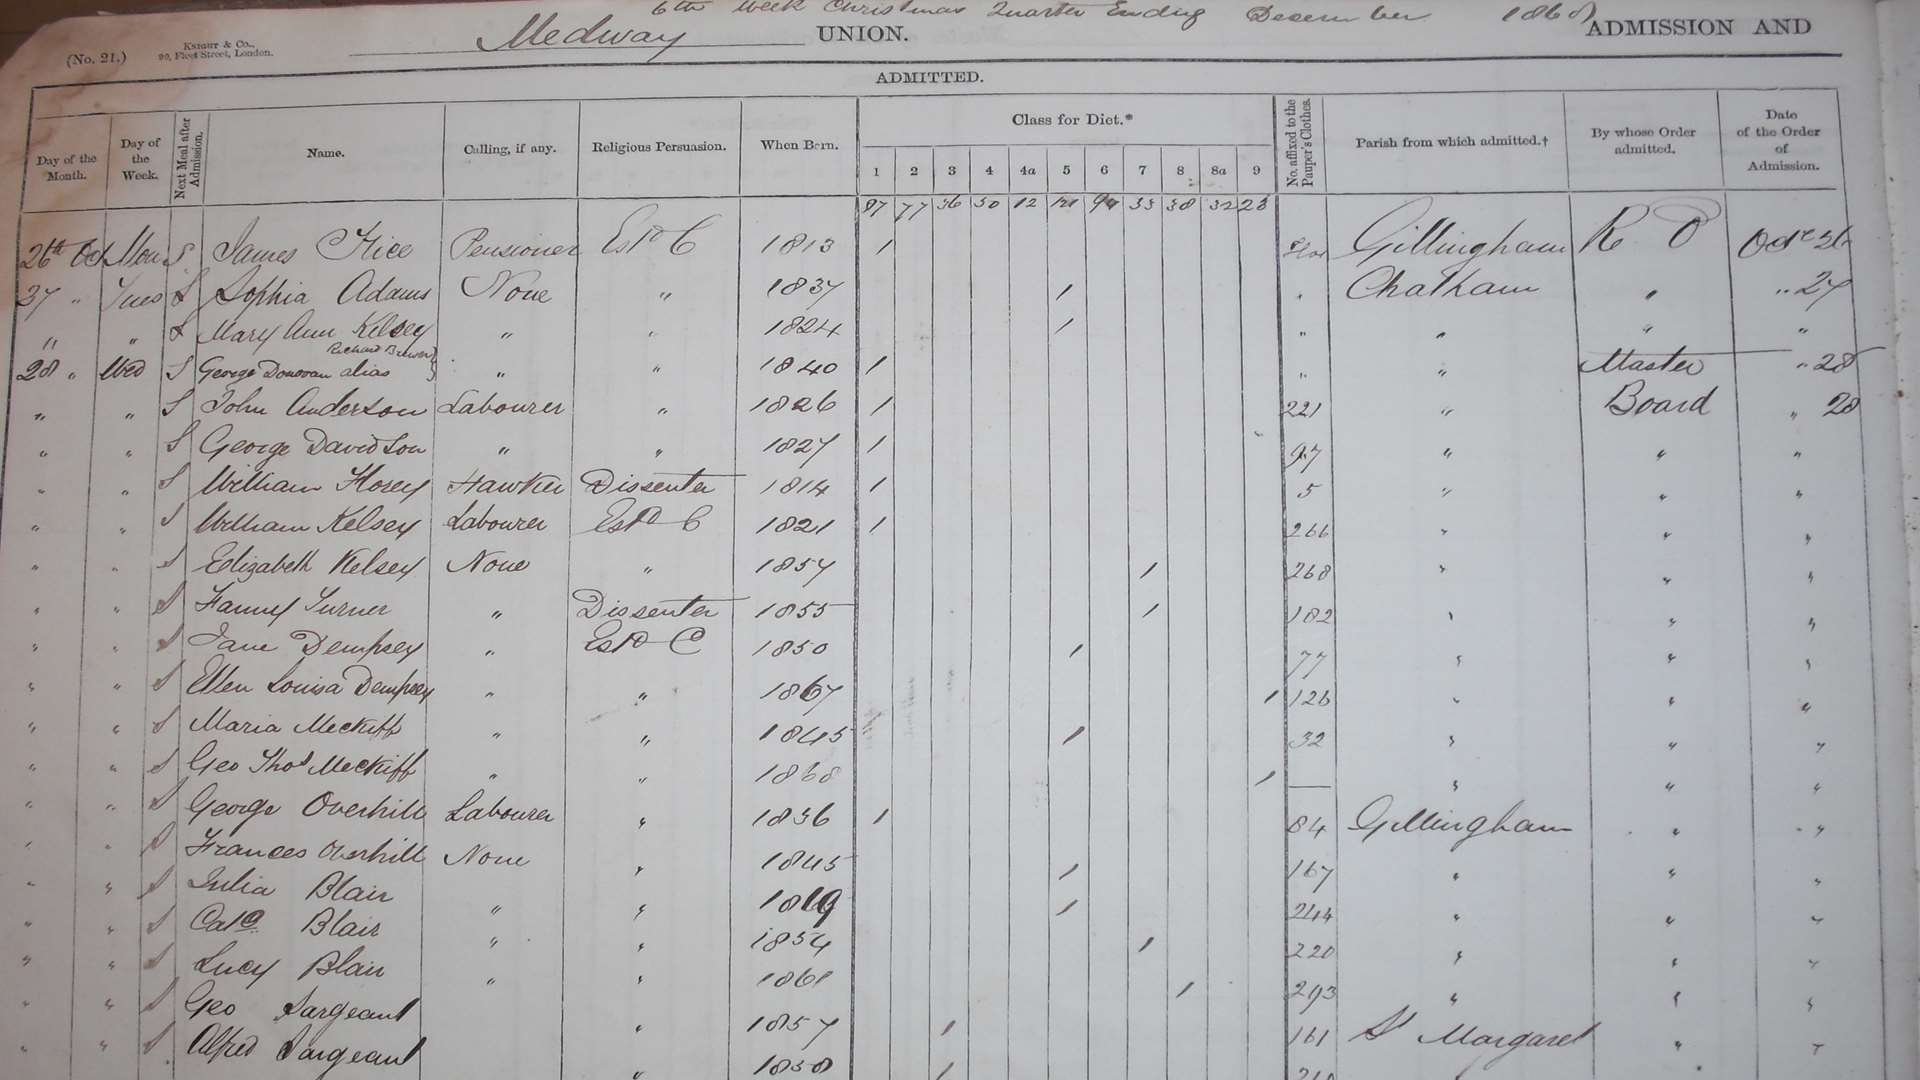 6th Week Christmas Quarter Ending December 1868
(No. 21.) KNIGHT & Co., 90, Fleet Street, London. Medway UNION. ADMISSION AND
ADMITTED.
Day of the Month. Day of the Week. Next Meal after Admission. Name. Calling, if any. Religious Persuasion. When Born. Class for Diet.* No. affixed to the Pauper's Clothes. Parish from which admitted.† By whose Order admitted. Date of the Order of Admission.
1 2 3 4 4a 5 6 7 8 8a 9
87 77 36 50 12 121 33 38 32 23
26th Oct Mon S James Estd C Pensioner 1813 1 Gillingham R O Octr 26
27 " Tues S Sophia Adams None " 1837 1 " Chatham " " 27
" " S Mary Ann Kelsey " " 1824 1 " " " "
Richard Brewer
28 " Wed S George Donovan alias " " 1840 1 " " Master " 28
" " S John Anderson Labourer " 1826 1 221 " Board " 28
" " S George Davidson " " 1827 1 97 " " "
" " S William Florey Hawker Dissenter 1814 1 5 " " "
" " S William Kelsey Labourer Estd C 1821 1 266 " " "
" " S Elizabeth Kelsey None " 1857 1 268 " " "
" " S Fanny Turner " Dissenter 1855 1 182 " " "
" " S Jane Dempsey " Estd C 1850 1 77 " " "
" " S Ellen Louisa Dempsey " " 1867 1 126 " " "
" " S Maria Meckiff " " 1845 1 32 " " "
" " S Geo Thos Meckiff " " 1868 1 — " " "
" " S George Overhill Labourer " 1836 1 84 Gillingham " " "
" " S Frances Overhill None " 1845 1 167 " " "
" " S Julia Blair " " 1819 1 244 " " "
" " S Cath Blair " " 1854 1 220 " " "
" " S Lucy Blair " " 1861 1 293 " " "
" " S Geo Sargeant " 1857 1 161 St Margaret " "
" " S Alfred Sargeant " 1858 1